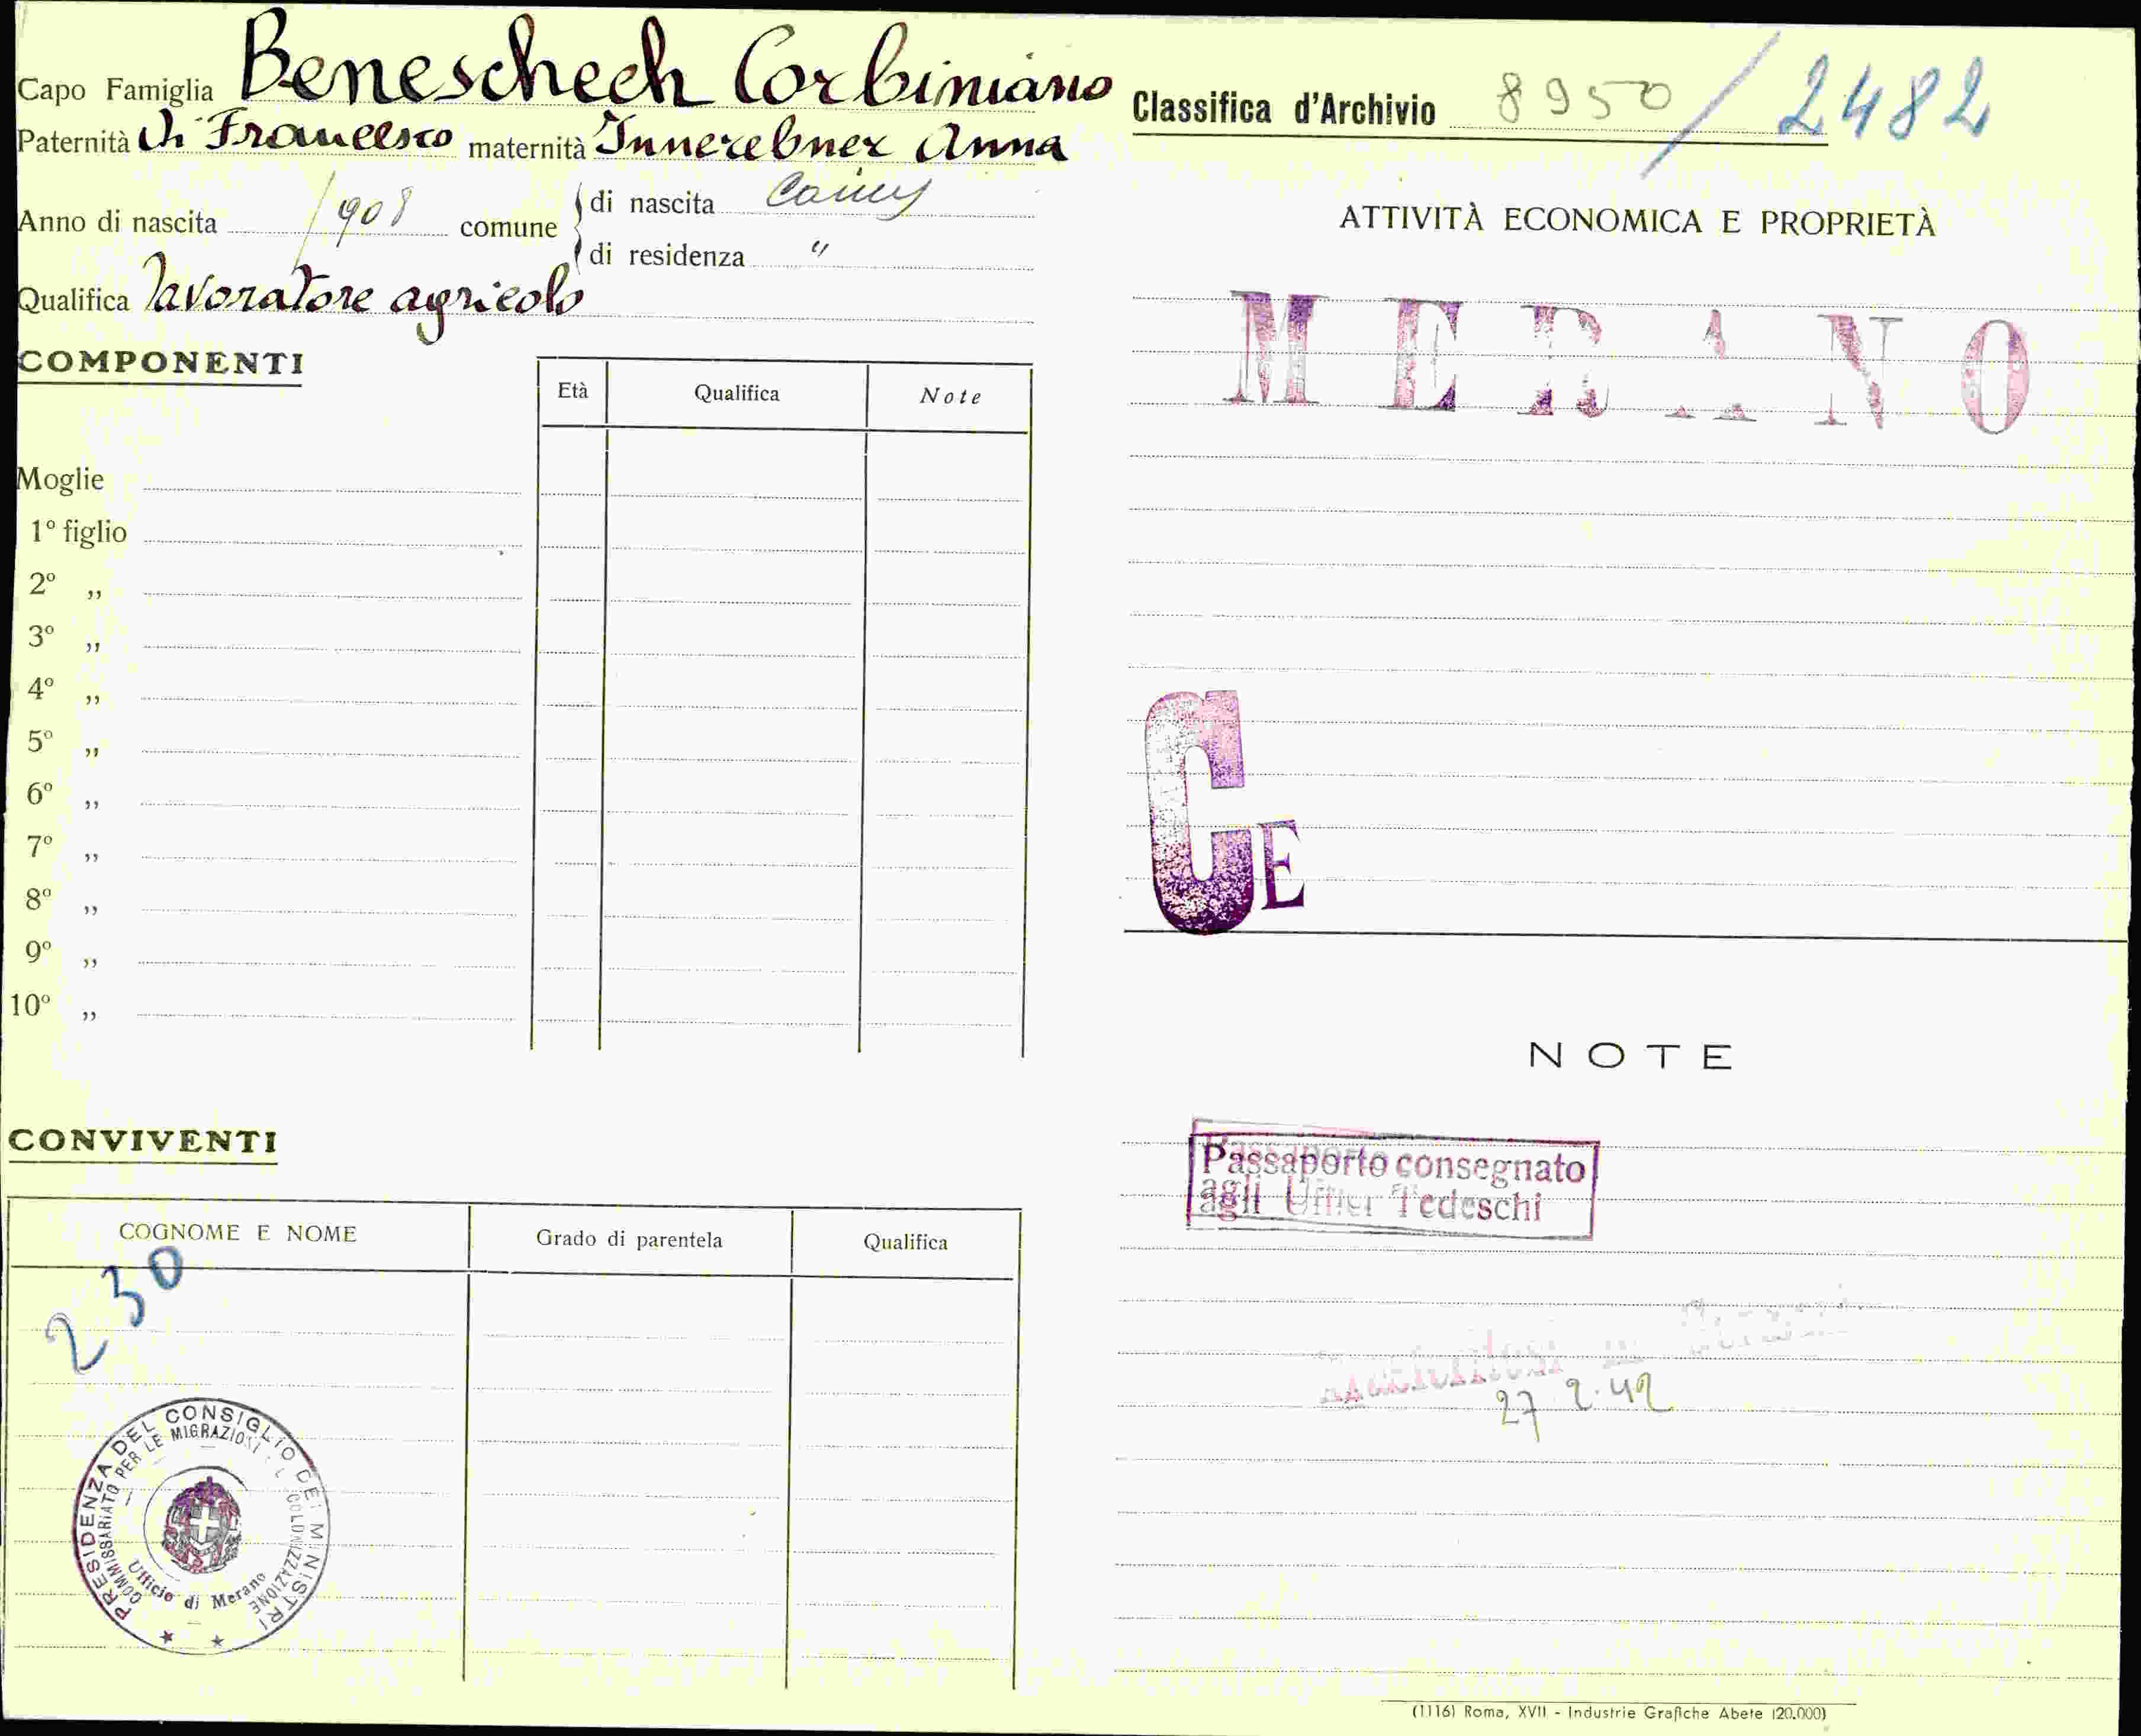 Capo Famiglia Beneschech Corbiniano
Paternità di Francesco maternità Innerebner Anna
Anno di nascita 1908 comune di nascita
di residenza "
Qualifica lavoratore agricolo
COMPONENTI
Età Qualifica Note
Moglie
1º figlio
2º "
3º "
4º "
5º "
6º "
7º "
8º "
9º "
10º "
CONVIVENTI
COGNOME E NOME Grado di parentela Qualifica
230
PRESIDENZA DEL CONSIGLIO DEI MINISTRI
COMMISSARIATO PER LE MIGRAZIONI E LA COLONIZZAZIONE
Ufficio di Merano
Classifica d'Archivio 8950 / 2482
ATTIVITÀ ECONOMICA E PROPRIETÀ
MERANO
CE
NOTE
Passaporto consegnato
agli Uffici Tedeschi
27 2.42
(1116) Roma, XVII - Industrie Grafiche Abete (20.000)